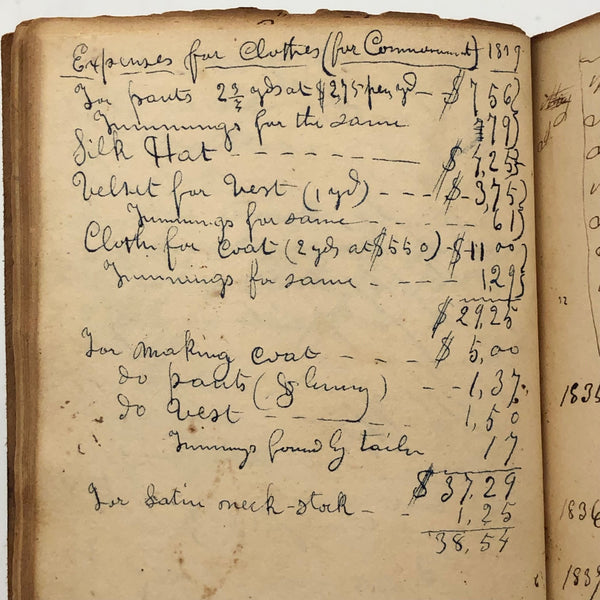 Expenses for Clothes (for Commencement) 1839
For pants 2 3/4 yds at $2 75 per yd — $ 7 56)
Trimmings for the same 79)
Silk Hat - - - - - - - $ 7,25
Velvet for Vest (1 yd) - - - $ 3,75)
Trimmings for same - - - - - 61)
Cloth for Coat (2 yds at $5 50) - $11 00)
Trimmings for same - - - - 1,29)
$ 29,25
For making coat - - - $ 5,00
do pants - - 1,37
do Vest 1,50
Trimmings found by tailor 17
$ 37,29
For Satin neck-stock - - 1,25
38,54
1836